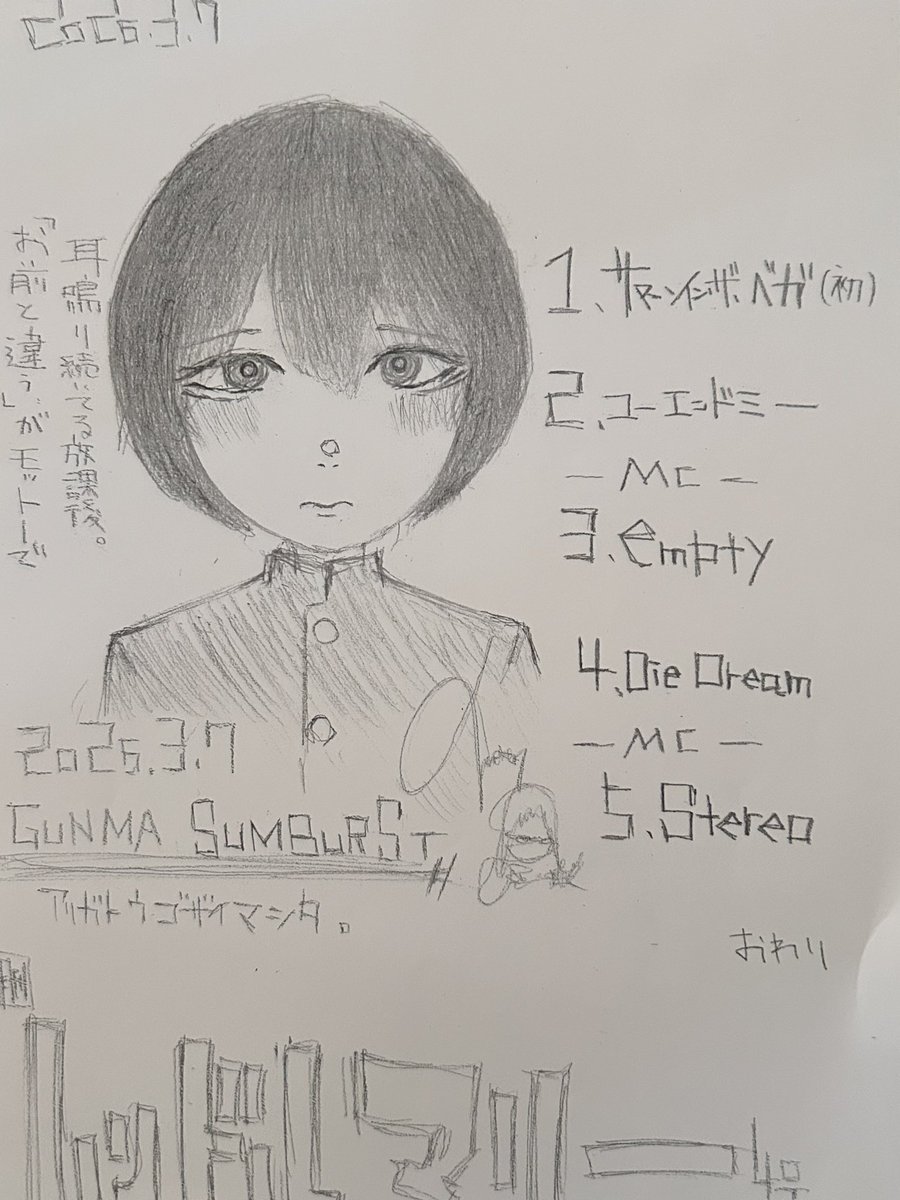 2026.3.7
耳鳴り続いてる放課後。
「お前と違う」がモットーで
1、サマーインザ・ベガ(初)
2、ユーエンドミー
－MC－
3、empty
4、Die Dream
－MC－
5、Stereo
2026.3.7
GUNMA SUMBURST
アリガトウ・ゴザイマシタ。
おわり